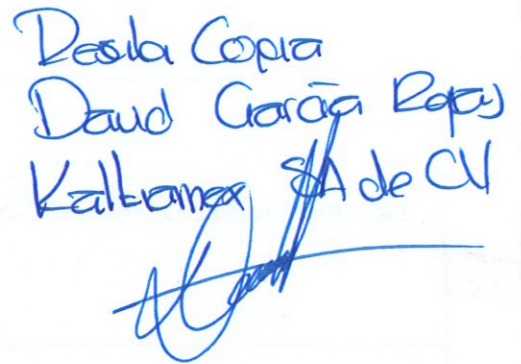 Recibi Copia
David García Rojas
Kaltramex SA de CV